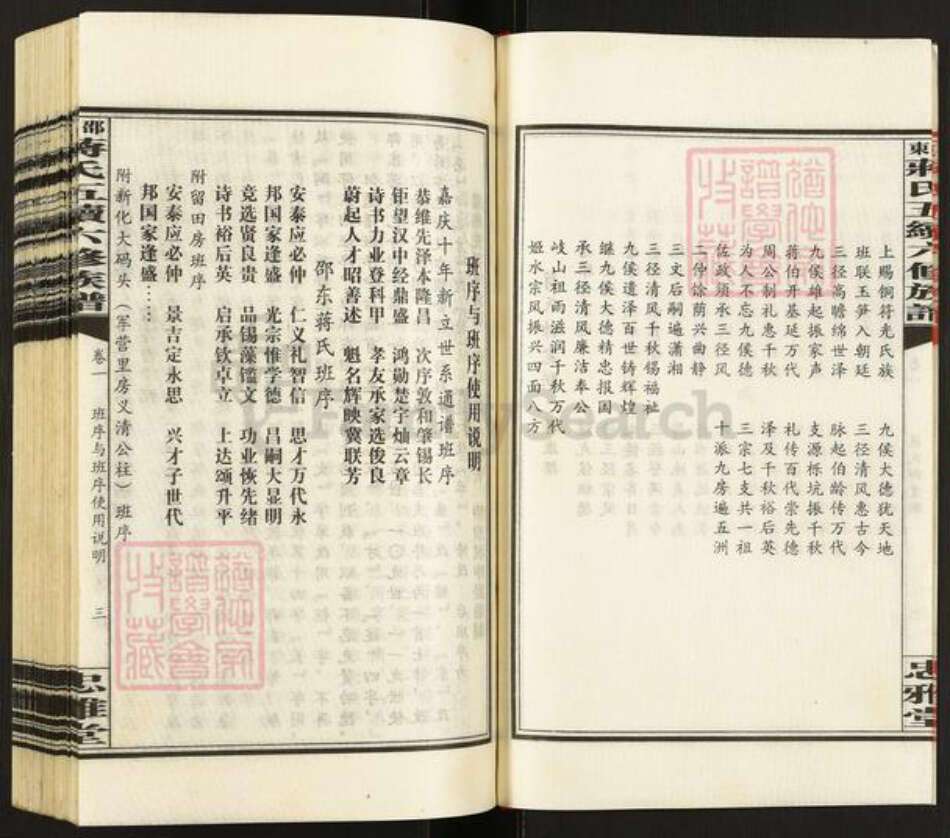 東
蔣氏五續六修族譜
忠雅堂
上赐铜符光氏族 九侯大德犹天地
班联玉笋入朝廷 三径清风惠古今
三径高瞻绵世泽 脉起伯龄传万代
九侯雄起振家声 支源栎坑振千秋
蒋伯开基延万代 礼传百代崇先德
周公制礼惠千秋 泽及千秋裕后英
为人不忘九侯德 三宗七支共一祖
佐政须承三径风 十派九房遍五洲
二仲馀荫兴曲静
三支后嗣遍潇湘
三径清风千秋锡福祉
九侯遗泽百世铸辉煌
继九侯大德精忠报国
承三径清风廉洁奉公
岐山祖雨滋润千秋万代
姬水宗风振兴四面八方
班序与班序使用说明
嘉庆十年新立世系通谱班序
恭维先泽本隆昌 次序敦和肇锡长
钜望汉中经鼎盛 鸿勋楚宇灿云章
诗书力业登科甲 孝友承家选俊良
蔚起人才昭善述 魁名辉映冀联芳
邵东蒋氏班序
安泰应必仲 仁义礼智信 思才万代永
邦国家逢盛 光宗惟学德 昌嗣大显明
竞选贤良贵 品锡藻镒文 功业恢先绪
诗书裕后英 启承钦卓立 上达颂升平
附留田房班序
安泰应必仲 景吉定永思 兴才子世代
邦国家逢盛……
附新化大码头（军营里房义清公柱）班序
邵
蔣氏五續六修族譜
卷一
班序与班序使用说明
三
忠雅堂
FamilySearch